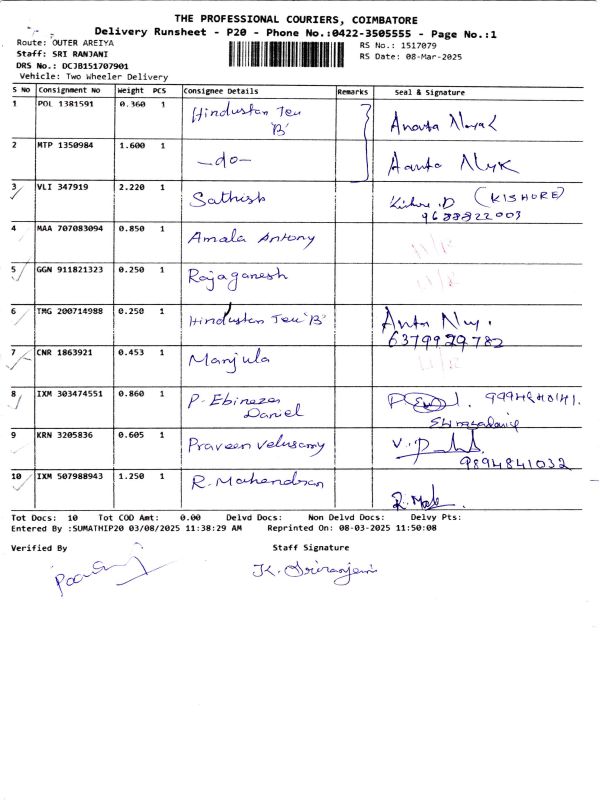 THE PROFESSIONAL COURIERS, COIMBATORE
Delivery Runsheet - P20 - Phone No.:0422-3505555 - Page No.:1
Route: OUTER AREIYA
RS No.: 1517079
Staff: SRI RANJANI
RS Date: 08-Mar-2025
DRS No.: DCJB151707901
Vehicle: Two Wheeler Delivery
S No Consignment No Weight PCS Consignee Details Remarks Seal & Signature
1 POL 1381591 0.360 1 Hindustan Teu 'B'
2 MTP 1350984 1.600 1 -do-
3 VLI 347919 2.220 1 Sathish Kishore .D (KISHORE)
9688822003
4 MAA 707083094 0.850 1 Amala Antony
5 GGN 911821323 0.250 1 Rajaganesh
6 TMG 200714988 0.250 1 Hindustan Teu 'B'
6379929782
7 CNR 1863921 0.453 1 Manjula
8 IXM 303474551 0.860 1 P. Ebinezer
Daniel
9 KRN 3205836 0.605 1 Praveen Velusamy
9894841032
10 IXM 507988943 1.250 1 R. Mahendran
Tot Docs: 10 Tot COD Amt: 0.00 Delvd Docs: Non Delvd Docs: Delvy Pts:
Entered By :SUMATHIP20 03/08/2025 11:38:29 AM Reprinted On: 08-03-2025 11:50:08
Verified By Staff Signature
K. Sriranjani